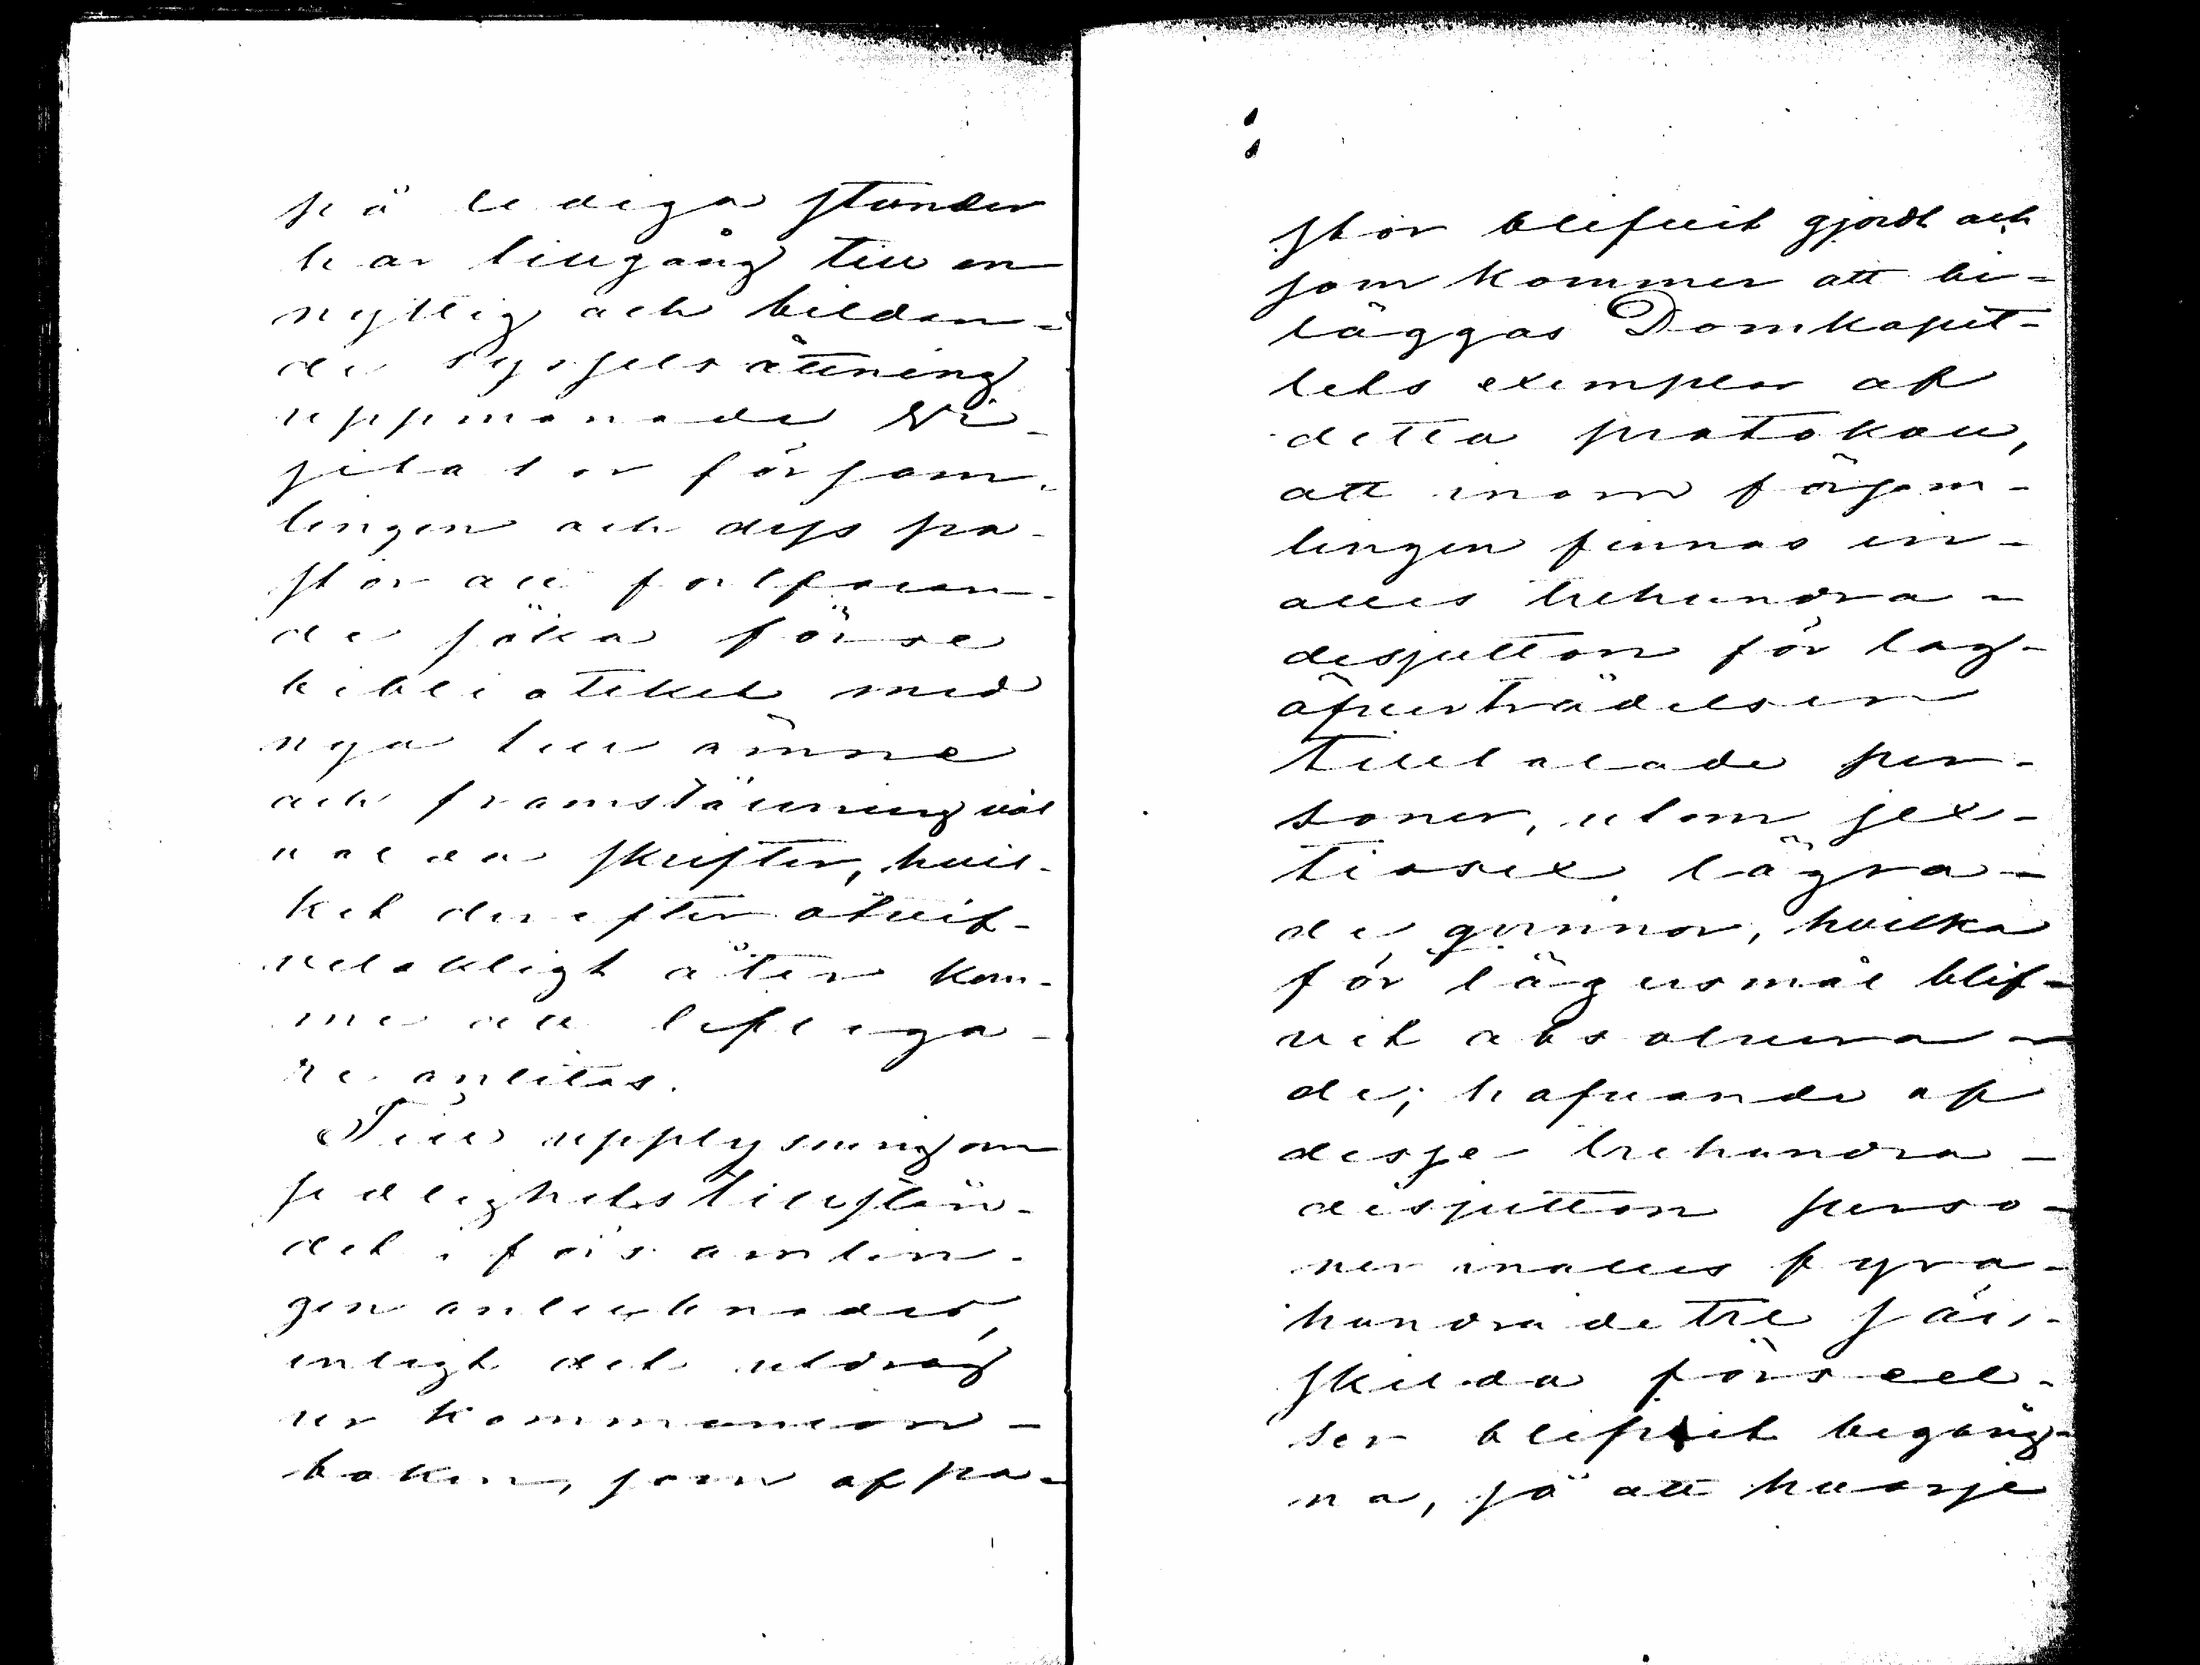 på lediga stunder
har tillgång till en
nyttig och bildan-
de sysselsättning
uppmanade Vi-
sitator försam-
lingen och dess pa-
stor att fortfaran-
de söka förse
biblioteket med
nya till ämne
och framställning väl
valda skrifter, hvil-
ket derefter otvif-
velaktigt åter kom-
me att lifliga-
re anlitas.
Till upplysning om
sedlighetstillstån-
det i församlin-
gen antecknades,
enligt det utdrag
ur kommunion-
boken, som af pa-
stor blifvit gjordt och
som kommer att bi-
läggas Domkapit-
lets exemplar af
detta protokoll,
att inom försam-
lingen finnas in-
alles trehundra-
desjutton för lag-
öfverträdelser
tilltalade per-
soner, utom sex-
tiosex lägra-
de qvinnor, hvilka
för lägersmål blif-
vit absolvera-
de; hafvande af
desse trehundra-
desjutton perso-
ner inalles fyra-
hundradetre sär-
skilda förseel-
ser blifvit begång-
na, så att hvarje